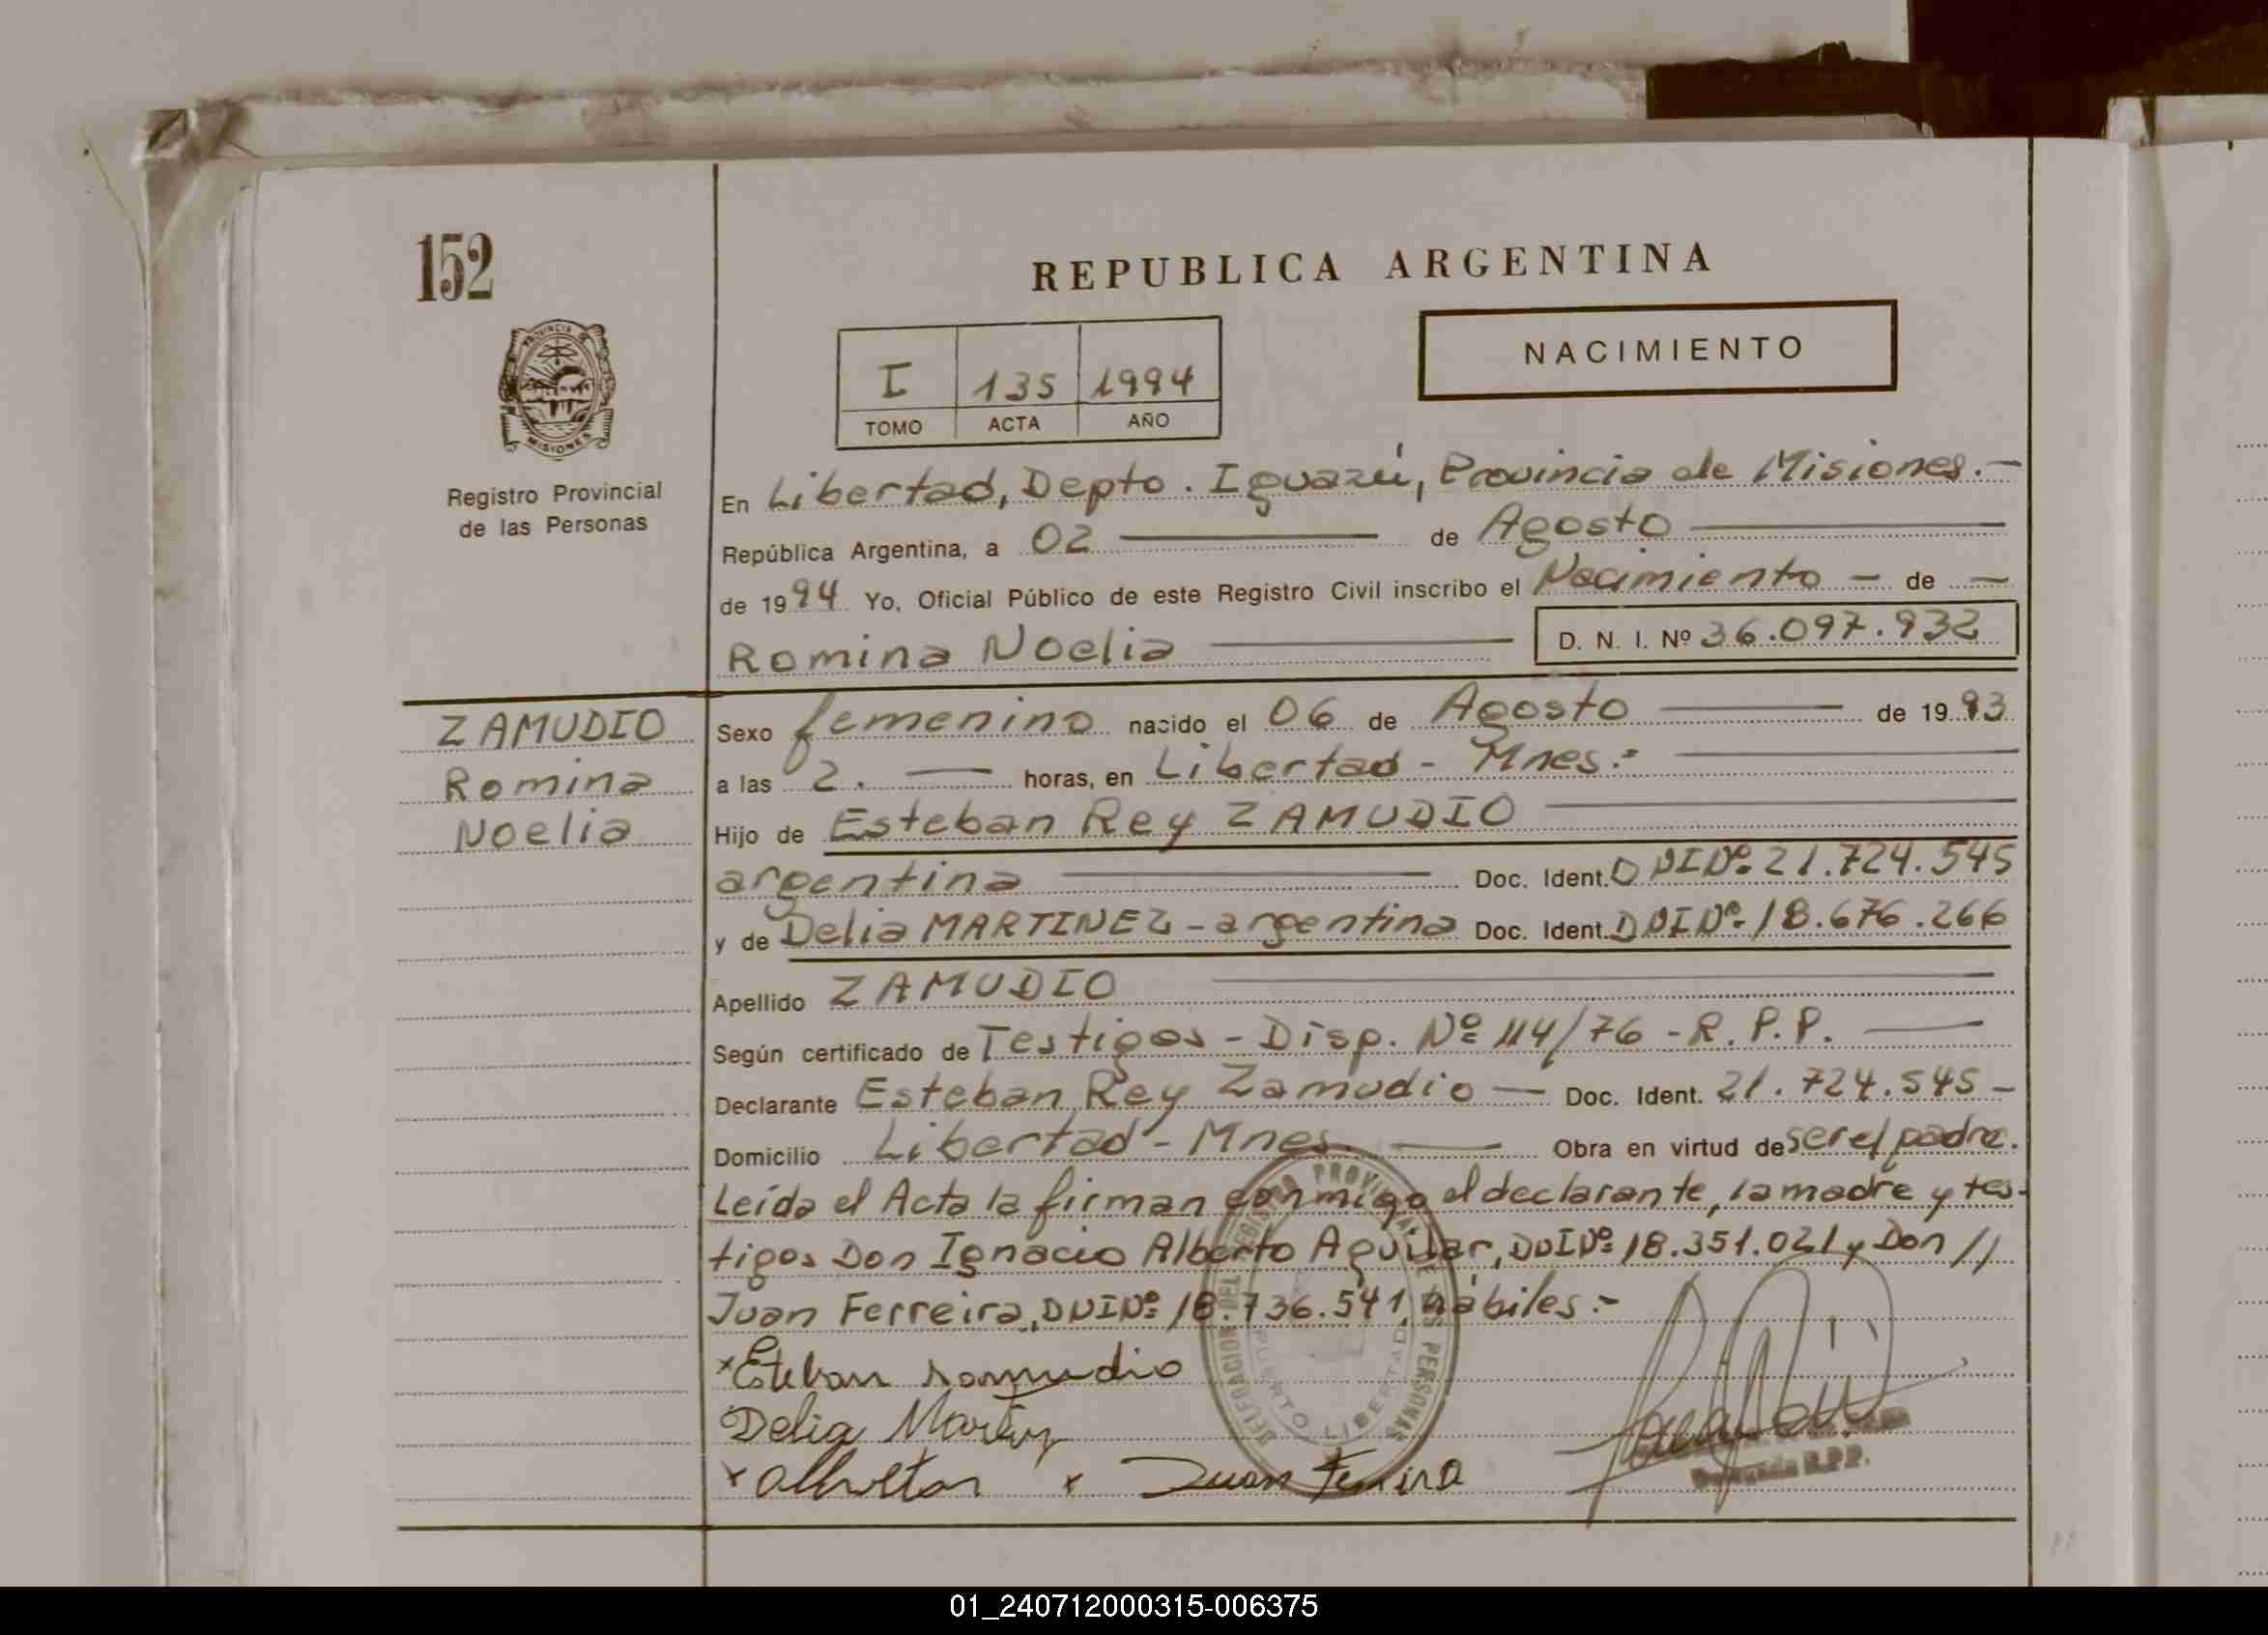 152
REPUBLICA ARGENTINA
NACIMIENTO
I 135 1994
TOMO ACTA AÑO
PROVINCIA DE
MISIONES
Registro Provincial
de las Personas
En Libertad, Depto. Iguazú, Provincia de Misiones.-
República Argentina, a 02 de Agosto
de 1994 Yo, Oficial Público de este Registro Civil inscribo el Nacimiento - de -
Romina Noelia D. N. I. Nº 36.097.932
ZAMUDIO
Romina
Noelia
Sexo femenino nacido el 06 de Agosto de 1993
a las 2. horas, en Libertad - Mnes:-
Hijo de Esteban Rey ZAMUDIO
argentina Doc. Ident. DNINº 21.724.545
y de Delia MARTINEZ - argentina Doc. Ident. DNINº 18.676.266
Apellido ZAMUDIO
Según certificado de Testigos - Disp. Nº 114/76 - R.P.P.
Declarante Esteban Rey Zamudio - Doc. Ident. 21.724.545 -
Domicilio Libertad - Mnes. Obra en virtud de ser el padre.
Leída el Acta la firman conmigo el declarante, la madre y tes-
tigos Don Ignacio Alberto Aguilar, DNINº 18.351.021 y Don //
Juan Ferreira, DNINº 18.736.541, hábiles:-
DELEGACION DEL REGISTRO PROVINCIAL DE LAS PERSONAS
PUERTO LIBERTAD
x Esteban Zamudio
Delia Martinez
x x Juan Ferreira
R.P.P.
01_240712000315-006375